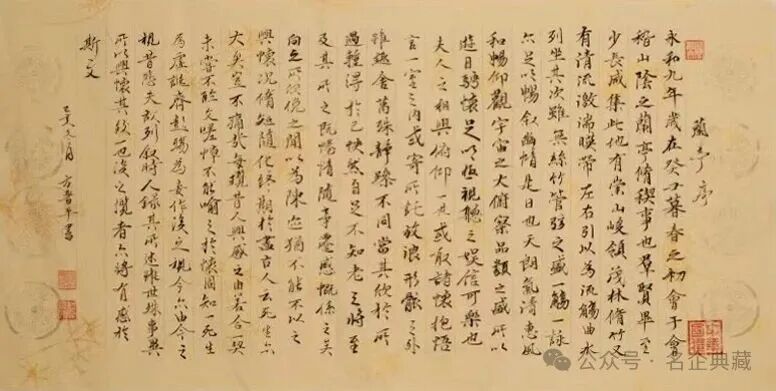 蘭亭序
永和九年歲在癸丑暮春之初會于會
稽山陰之蘭亭脩稧事也羣賢畢至
少長咸集此地有崇山峻領茂林脩竹又
有清流激湍暎帶左右引以為流觴曲水
列坐其次雖無絲竹管弦之盛一觴一詠
亦足以暢叙幽情是日也天朗氣清惠風
和暢仰觀宇宙之大俯察品類之盛所以
遊目騁懷足以極視聽之娛信可樂也
夫人之相與俯仰一世或取諸懷抱悟
言一室之內或寄所託放浪形骸之外
雖趣舍萬殊靜躁不同當其欣於所
遇暫得於己快然自足不知老之將至
及其所之既惓情隨事遷感慨係之矣
向之所欣俛之間以為陳迹猶不能不以之
興懷況脩短隨化終期於盡古人云死生亦
大矣豈不痛哉每攬昔人興感之由若合一契
未嘗不臨文嗟悼不能喻之於懷固知一死生
為虛誕齊彭殤為妄作後之視今亦由今之
視昔悲夫故列叙時人錄其所述雖世殊事異
所以興懷其致一也後之攬者亦將有感於
斯文
己亥九月
公众号·名企典藏